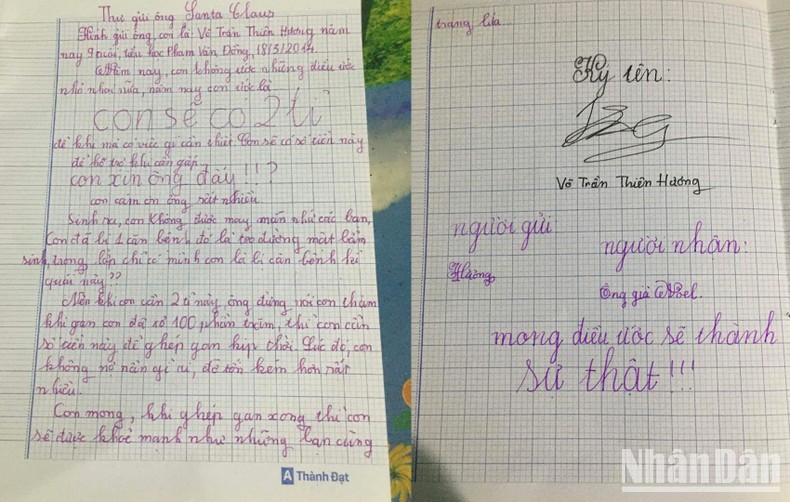 Thư gửi ông Santa Claus
Kính gửi ông, con là Võ Trần Thiên Hương năm
nay 9 tuổi, tiểu học Phạm Văn Đồng, 18/3/2014.
Năm nay, con không ước những điều ước
nhỏ nhoi nữa, năm nay con ước là
con sẽ có 2 tỉ
để khi mà có việc gì cần thiết. Con sẽ có số tiền này
để hỗ trợ khi cần gấp,
con xin ông đấy!!!?
con cảm ơn ông rất nhiều
Sinh ra, con không được may mắn như các bạn,
Con đã bị 1 căn bệnh đó là teo đường mật bẩm
sinh, trong lớp chỉ có mình con là bị căn bệnh
quái này??
Nên khi con cần 2 tỉ này, ông đừng nói con tham
khi gan con đã xơ 100 phần trăm, thì con cần
số tiền này để ghép gan kịp thời. Lúc đó, con
không nợ nần gì cả, đỡ tốn kém hơn rất
nhiều.
Con mong, khi ghép gan xong thì con
sẽ được khoẻ mạnh như những bạn cùng
A Thành Đạt
trang lứa.
Ký tên:
Võ Trần Thiên Hương
người gửi
người nhận:
Hương
Ông già Noel.
mong điều ước sẽ thành
sự thật!!!
NhânDân